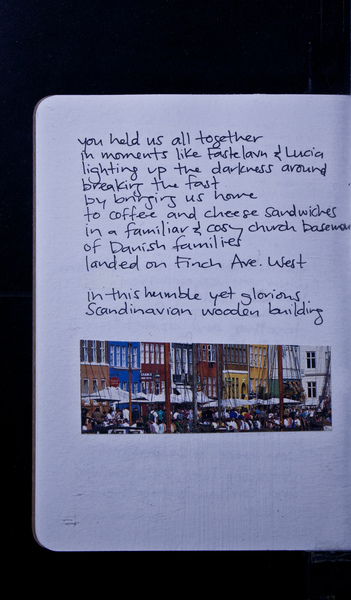 you held us all together
in moments like Fastelavn & Lucia
lighting up the darkness around
breaking the fast
by bringing us home
to coffee and cheese sandwiches
in a familiar & cosy church basemen
of Danish families
landed on Finch Ave. West
in this humble yet glorious
Scandinavian wooden building